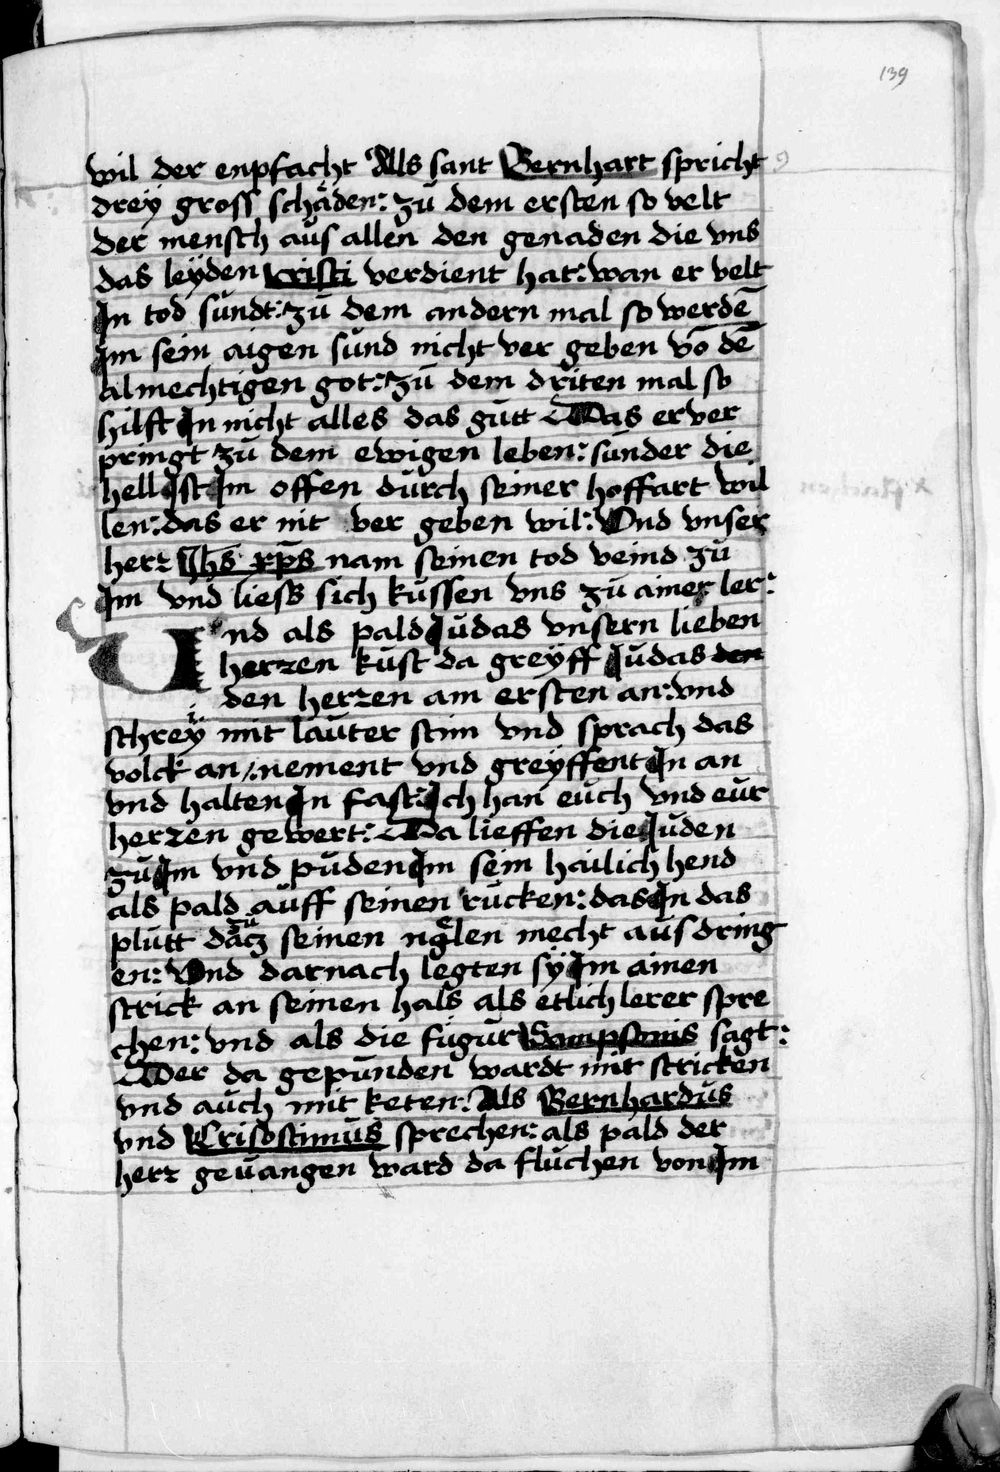 139
wil der enpfacht Als sant Bernhart spricht
drey gross schäden: zů dem ersten so velt
der mensch aus allen den genaden die vns
das leyden cristi verdient hat: wan er velt
In tod sundt: zů dem andern mal so werdē
Im sein aigen sund nicht ver geben vō dē
almechtigen got: zů dem driten mal so
hilft In nicht alles das gutt Das er ver
pringt zů dem ewigen leben: sunder die
hell Ist Im offen durch seiner hoffart wil
len: das er nit ver geben wil: Vnd vnser
herr Jhs xp̄s nam seinen tod veind zů
Im vnd liess sich kussen vns zů ainer ler:
Vnd als pald Judas vnsern lieben
herren kust da greyff Judas den
den herren am ersten an: vnd
schrey mit lauter stim vnd sprach das
volck an: nement vnd greyffent In an
vnd halten In fast: Ich han euch vnd eur
herren gewert: Da lieffen die Juden
zů Im vnd puden Im sein hailich hend
als pald auff seinen rucken: das In das
plutt datzů seinen nǧlen mecht aus dring
en: Vnd darnach legten sy Im ainen
strick an seinen hals als etlich lerer spre
chen: vnd als die fugur Sampsonis sagt:
Der da gepunden wardt mit stricken
vnd auch mit keten: Als Bernhardus
vnd Crisostimus sprechen: als pald der
herr geuangen ward da fluchen von Im